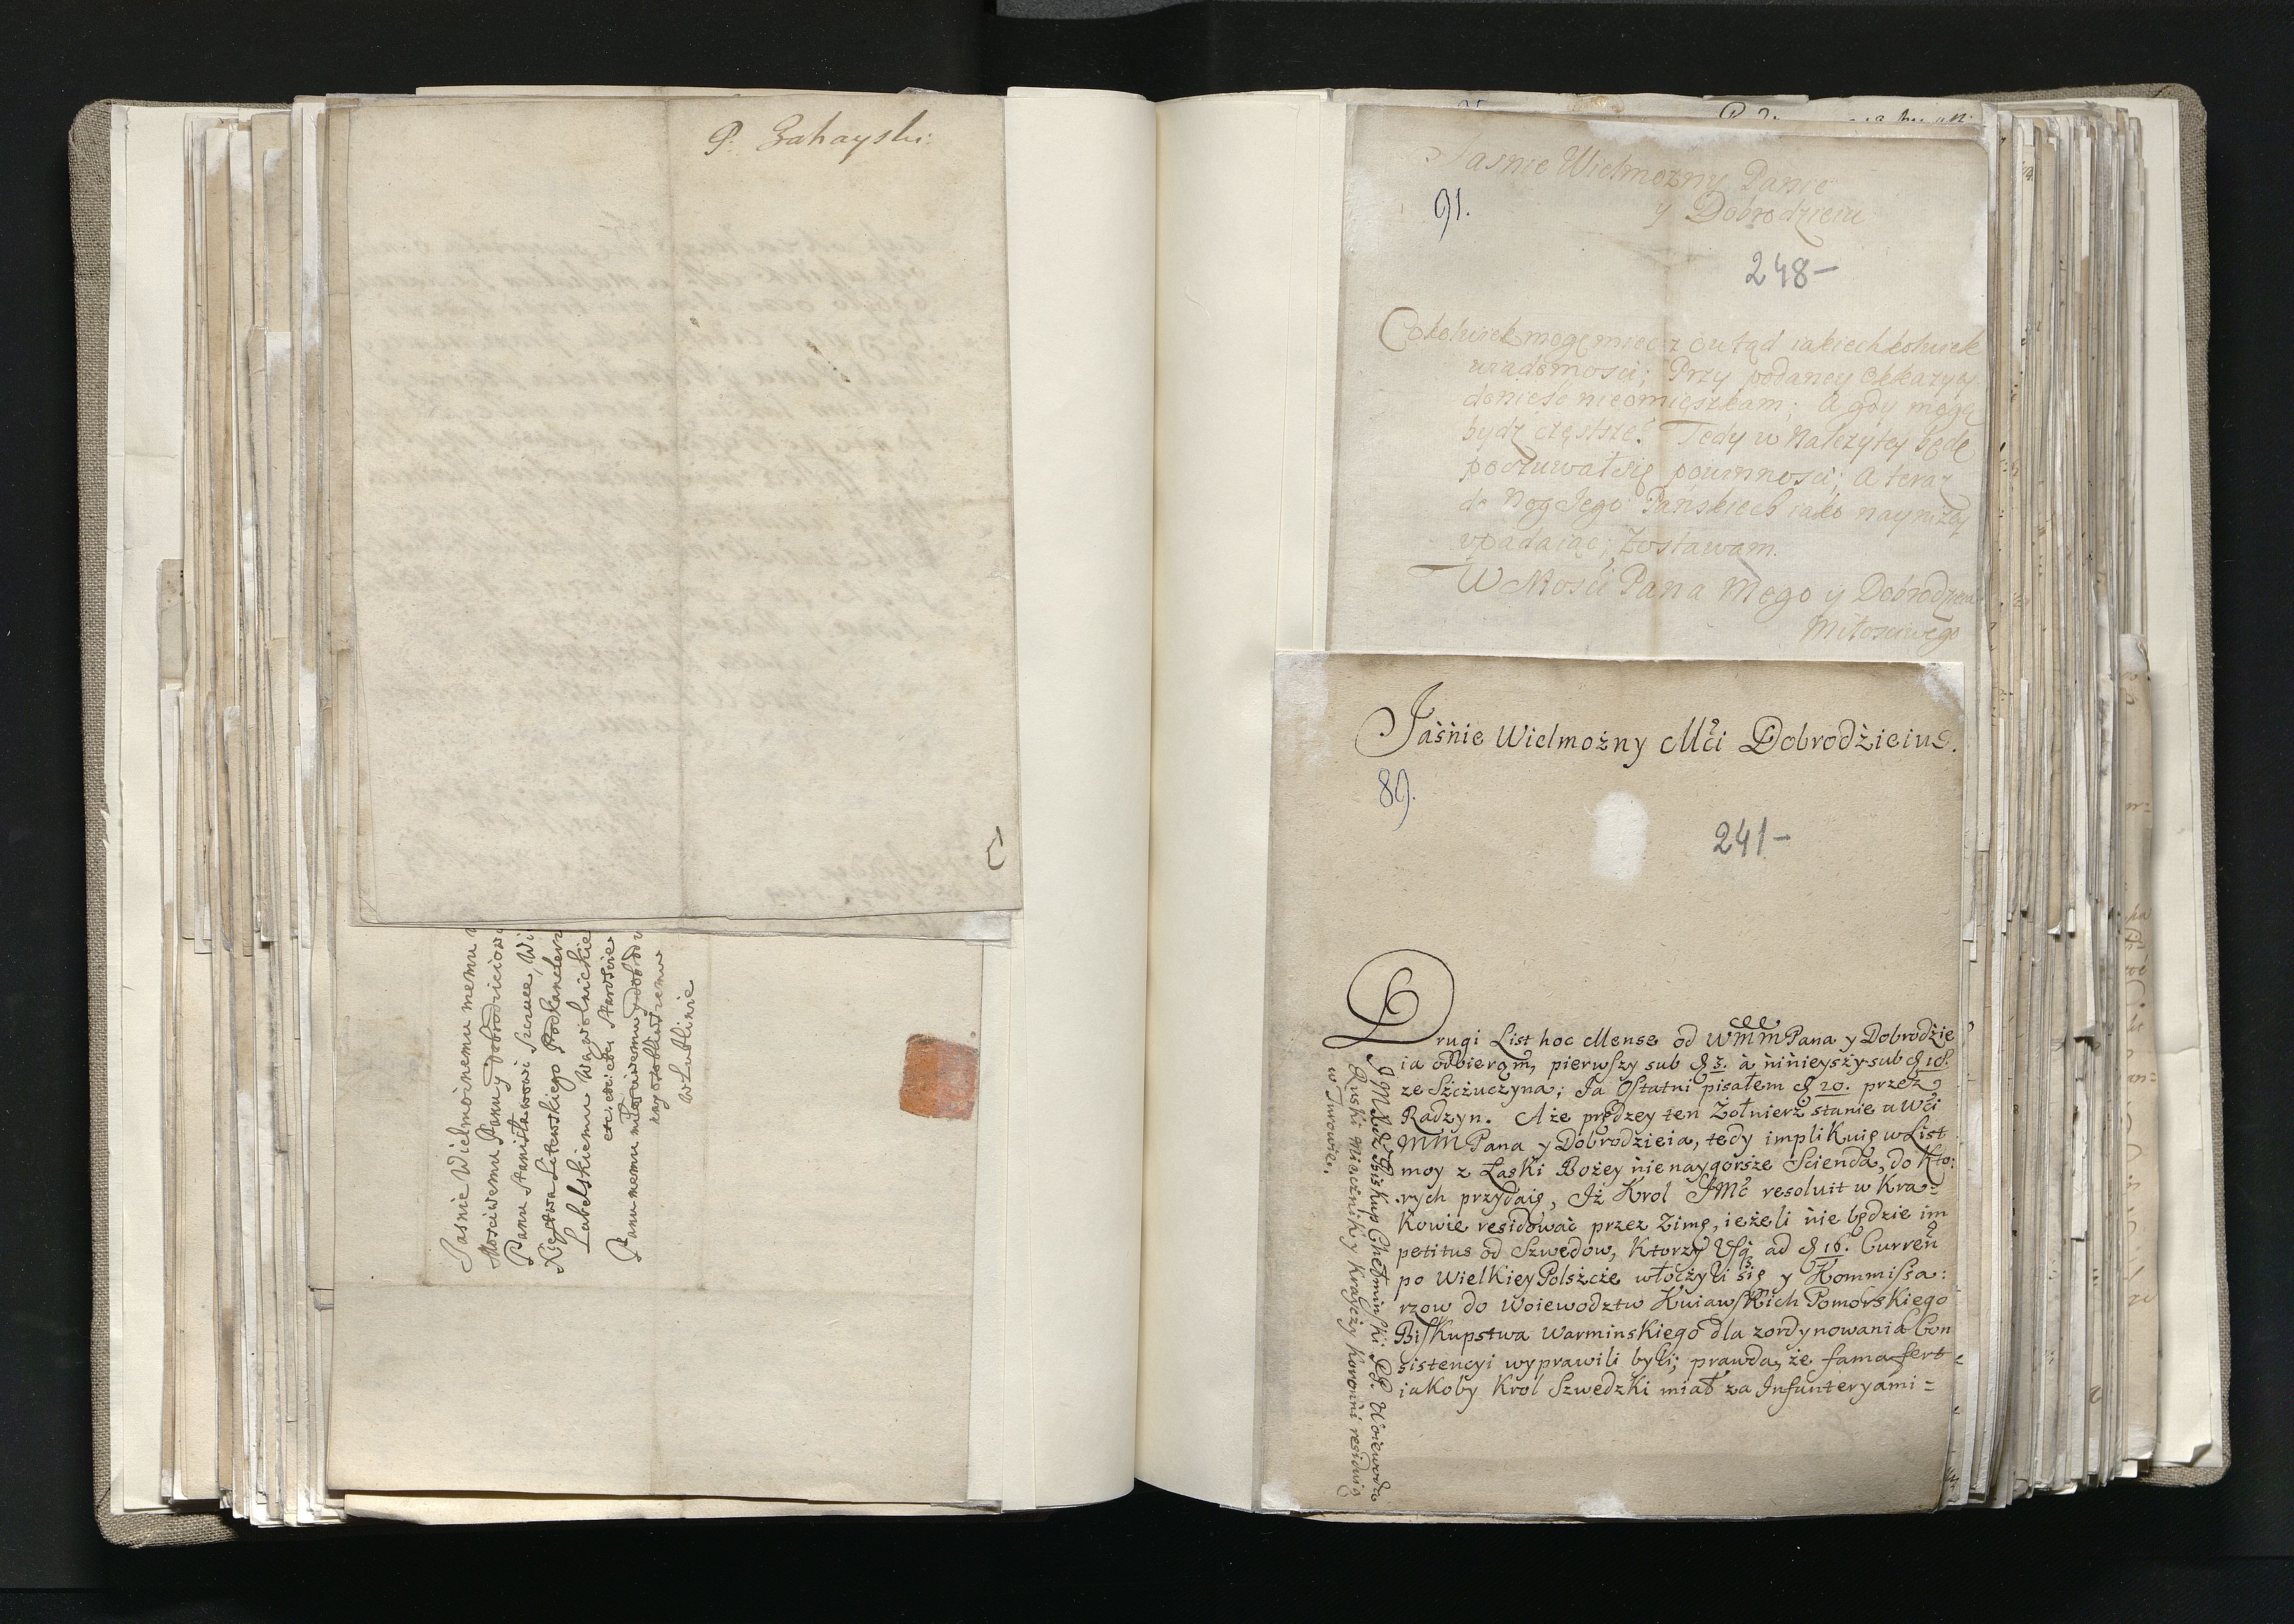 P. Zahayski
Jasnie Wielmoznemu memu
Mosciwemu Panu y Dobrodzieiowi
Panu Stanisławowi Szczuce, Wi
Xięstwa Litewskiego Podkanclerz
Lubelskiemu Wąwolnickie
etc: etc: etc: Staroście
Panu memu miłosciwemu y dobro
nayosobliwszemu
w Lublinie
Jasnie Wielmozny Panie
y Dobrodzieiu
91.
248-
Cokolwiek mogę miec z tutąd iakiechkolwiek
wiadomosci; Przy podaney okkazyey
doniesć nieomięszkam; A gdy mogą
bydz częstsze? Tedy w Nalezytey będę
poczuwał się powinnosci; A teraz
do Nog Jego Panskiech iako nayniżey
vpadaiąc; Zostawam.
W Mosci Pana Mego y Dobrodzieia
Miłosciwego
Jaśnie Wielmożny Mći Dobrodźieiu.
89.
241-
Drugi List hoc Mense od WMM Pana y Dobrodzie
ia odbieram, pierwszy sub d 3. a ninieyszy sub d 18.
ze Szczuczyna; Ja Ostatni pisałem d 20. przez
Radzyn. A że prędzey ten Żołnierz stanie u Wći
MM Pana y Dobrodzieia, tedy implikuię w List
moy z Łaski Bożey nienaygorsze Scienda, do Kto:
rych przydaię, Iż Krol JMć resoluit w Kra-
kowie residować przez Zimę, ieżeli nie będzie im
petitus od Szwedow, Ktorzy Usq ad d 16. Curren
po Wielkiey Polszcze włoczyli się y Kommissa:
rzow do Woiewodztw Kuiawskich Pomorskiego
Biskupstwa Warminskiego dla zordynowania Con
sistencyi wyprawili byli; prawda, że fama fert
iakoby Krol Szwedzki miał za Infanteryami=
JMX Biskup Chełmiński PP. Woiewoda
Ruski Miecznik y Krayczy Koronni residuią
w Turowie.